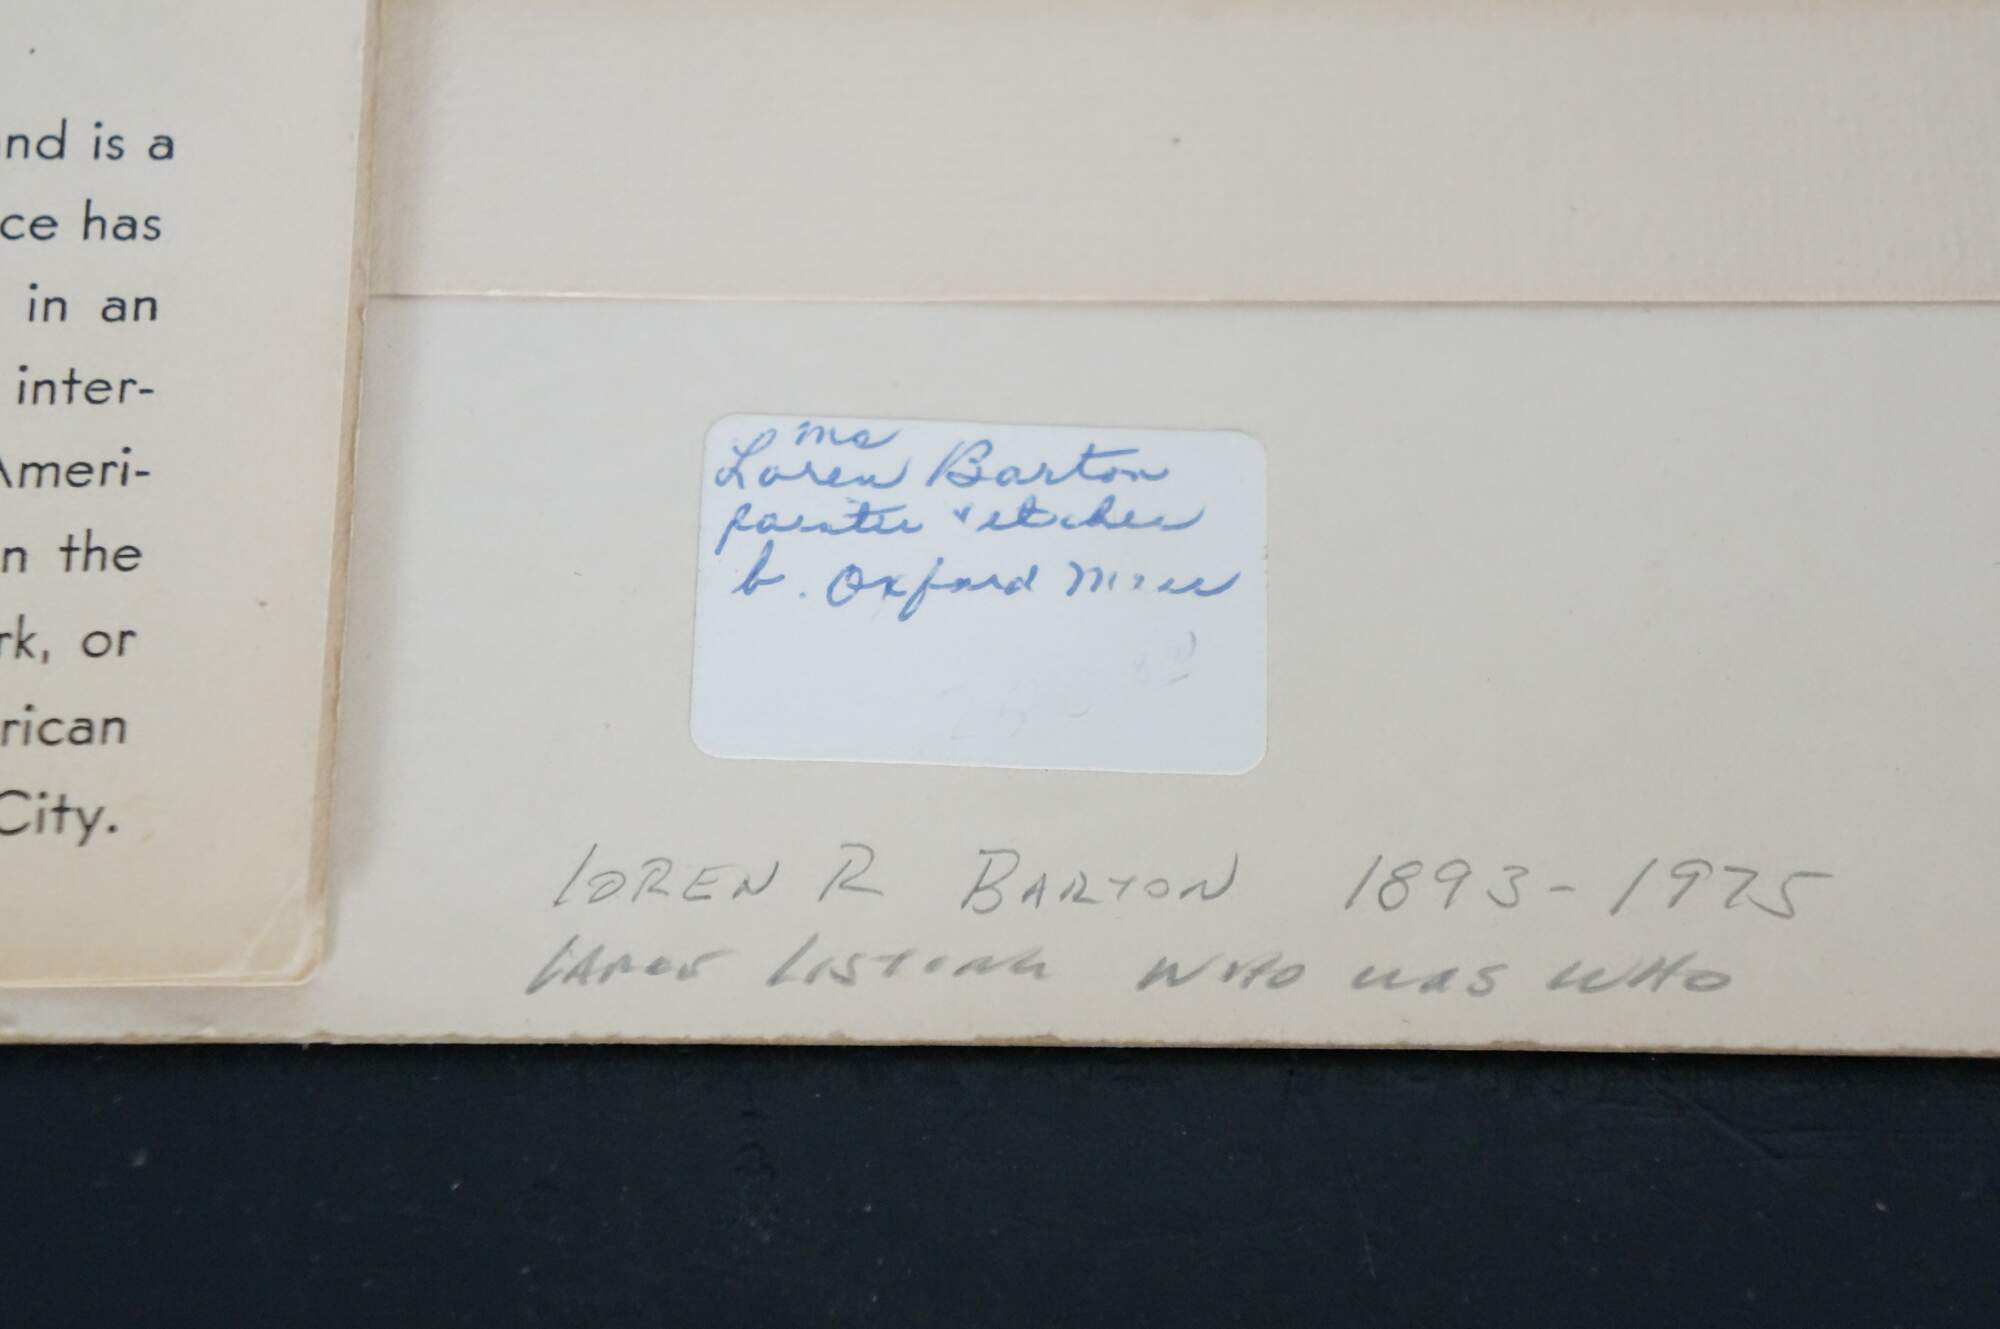 nd is a
ce has
in an
inter-
Ameri-
n the
rk, or
rican
City.
Ms
Loren Barton
painter & etcher
b. Oxford Mass
LOREN R BARTON 1893-1975
LARGE LISTING WHO WAS WHO